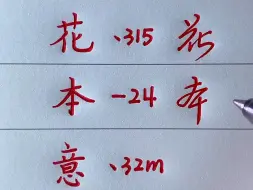 花 、315 花
本 -24 本
意 、32m